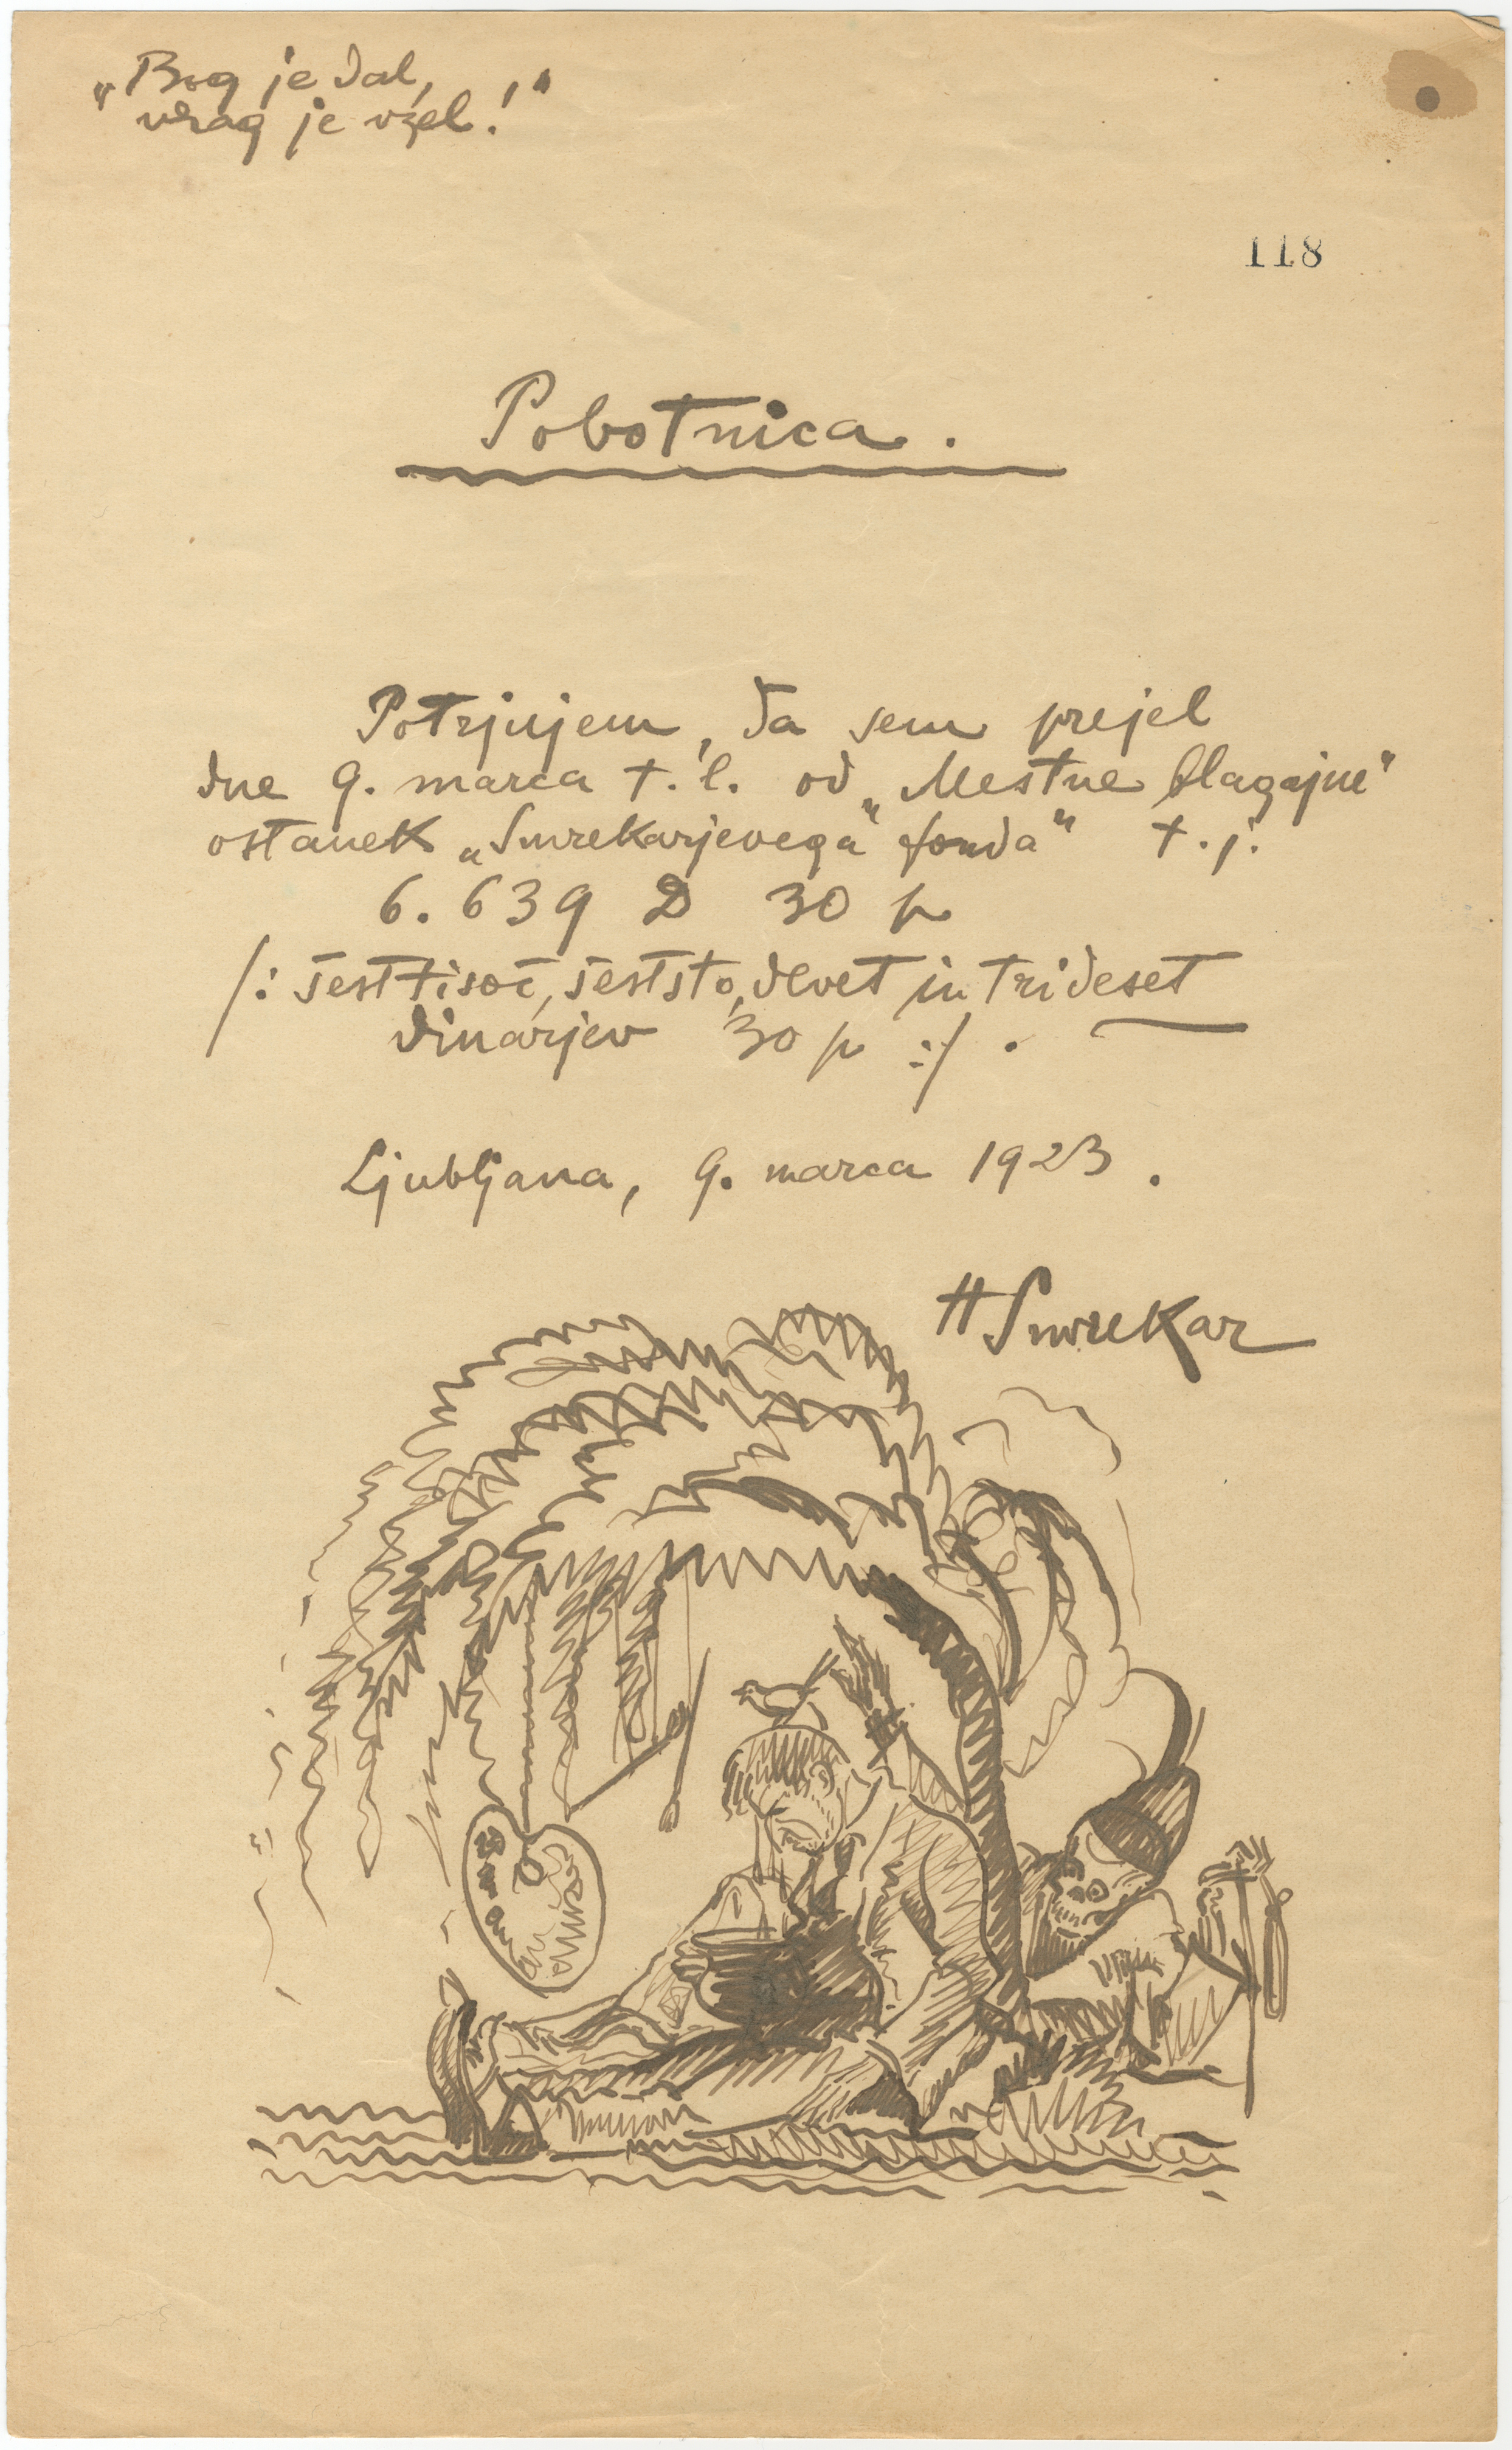 „Bog je dal,
vrag je vzel!“
118
Pobotnica.
Potrjujem, da sem prejel
dne 9. marca t. l. od „Mestne blagajne“
ostanek „Smrekarjevega“ fonda“ t. j.
6. 639 D 30 p
/: šesttisoč, šeststo, devet in trideset
dinarjev 30 p :/ .
Ljubljana, 9. marca 1923.
HSmrekar